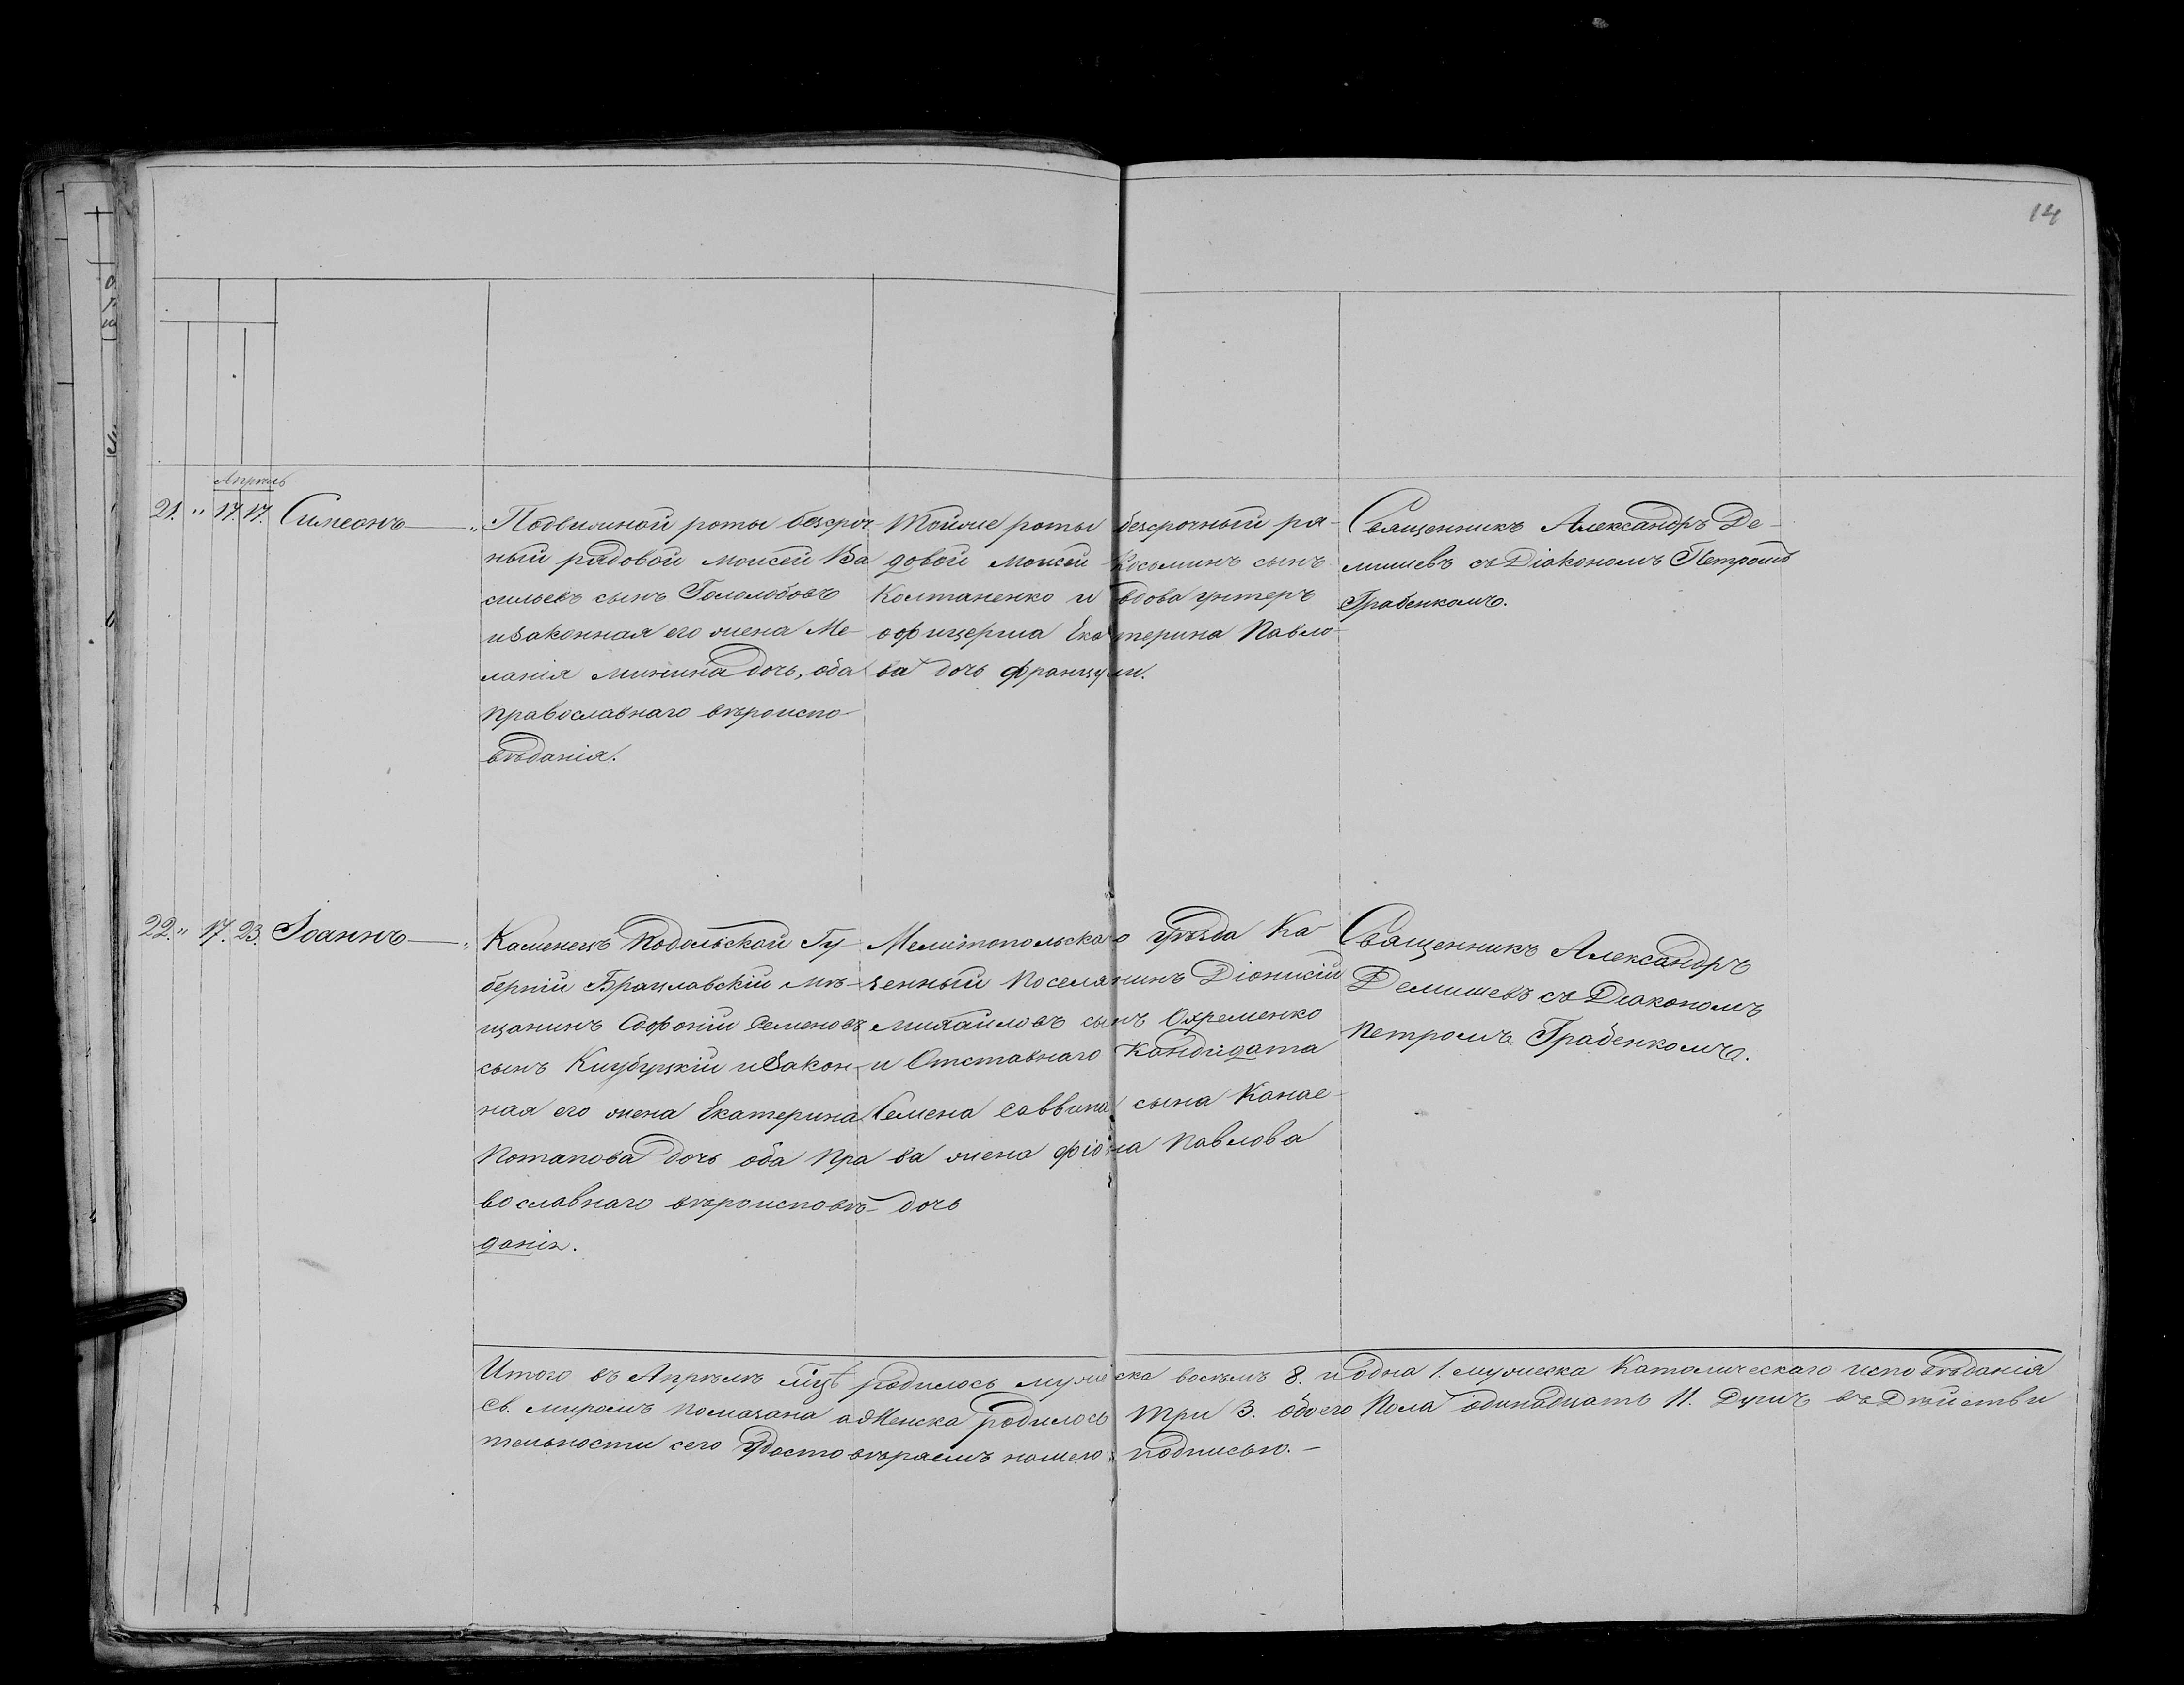 14
Апрѣль
21. " 17. 17. Симеонъ — "
Подвижной роты безсроч-
ный рядовой Моисей Ва
сильевъ сынъ Гололобовъ
и законная его жена Ме-
ланія Минина дочь, оба
православнаго вѣроиспо-
вѣданія.
Тойже роты безсрочный ря-
довой Моисей Косьминъ сынъ
Колтаненко и вдова унтеръ
офицерша Екатерина Павло-
ва дочь
Священникъ Александръ Де-
мишевъ съ Діакономъ Петромъ
Грабенкомъ.
22. " 17. 23. Іоаннъ — "
Каменецъ Подольской Гу-
берніи Брацлавскій мѣ-
щанинъ Софоній Семеновъ
сынъ и закон-
ная его жена Екатерина
Потапова дочь оба Пра
вославнаго вѣроисповѣ-
данія.
Мелитопольскаго уѣзда Ка-
зенный Поселянинъ Діонисій
Михайловъ сынъ Охременко
и Отставнаго Кандидата
Семена Саввина сына Канае-
ва жена Фіона Павлова
дочь
Священникъ Александръ
Демишевъ съ Діакономъ
Петромъ Грабенкомъ.
Итого въ Апрѣлѣ мцѣ родилось мужеска восѣмъ 8. и одна 1. мужеска Католическаго исповѣданія
Св. миромъ помазана а Женска родилось три 3. обоего Пола одинадцать 11. Душъ въ Дѣйстви
тельности сего Удостовѣряемъ нашею подписью. —